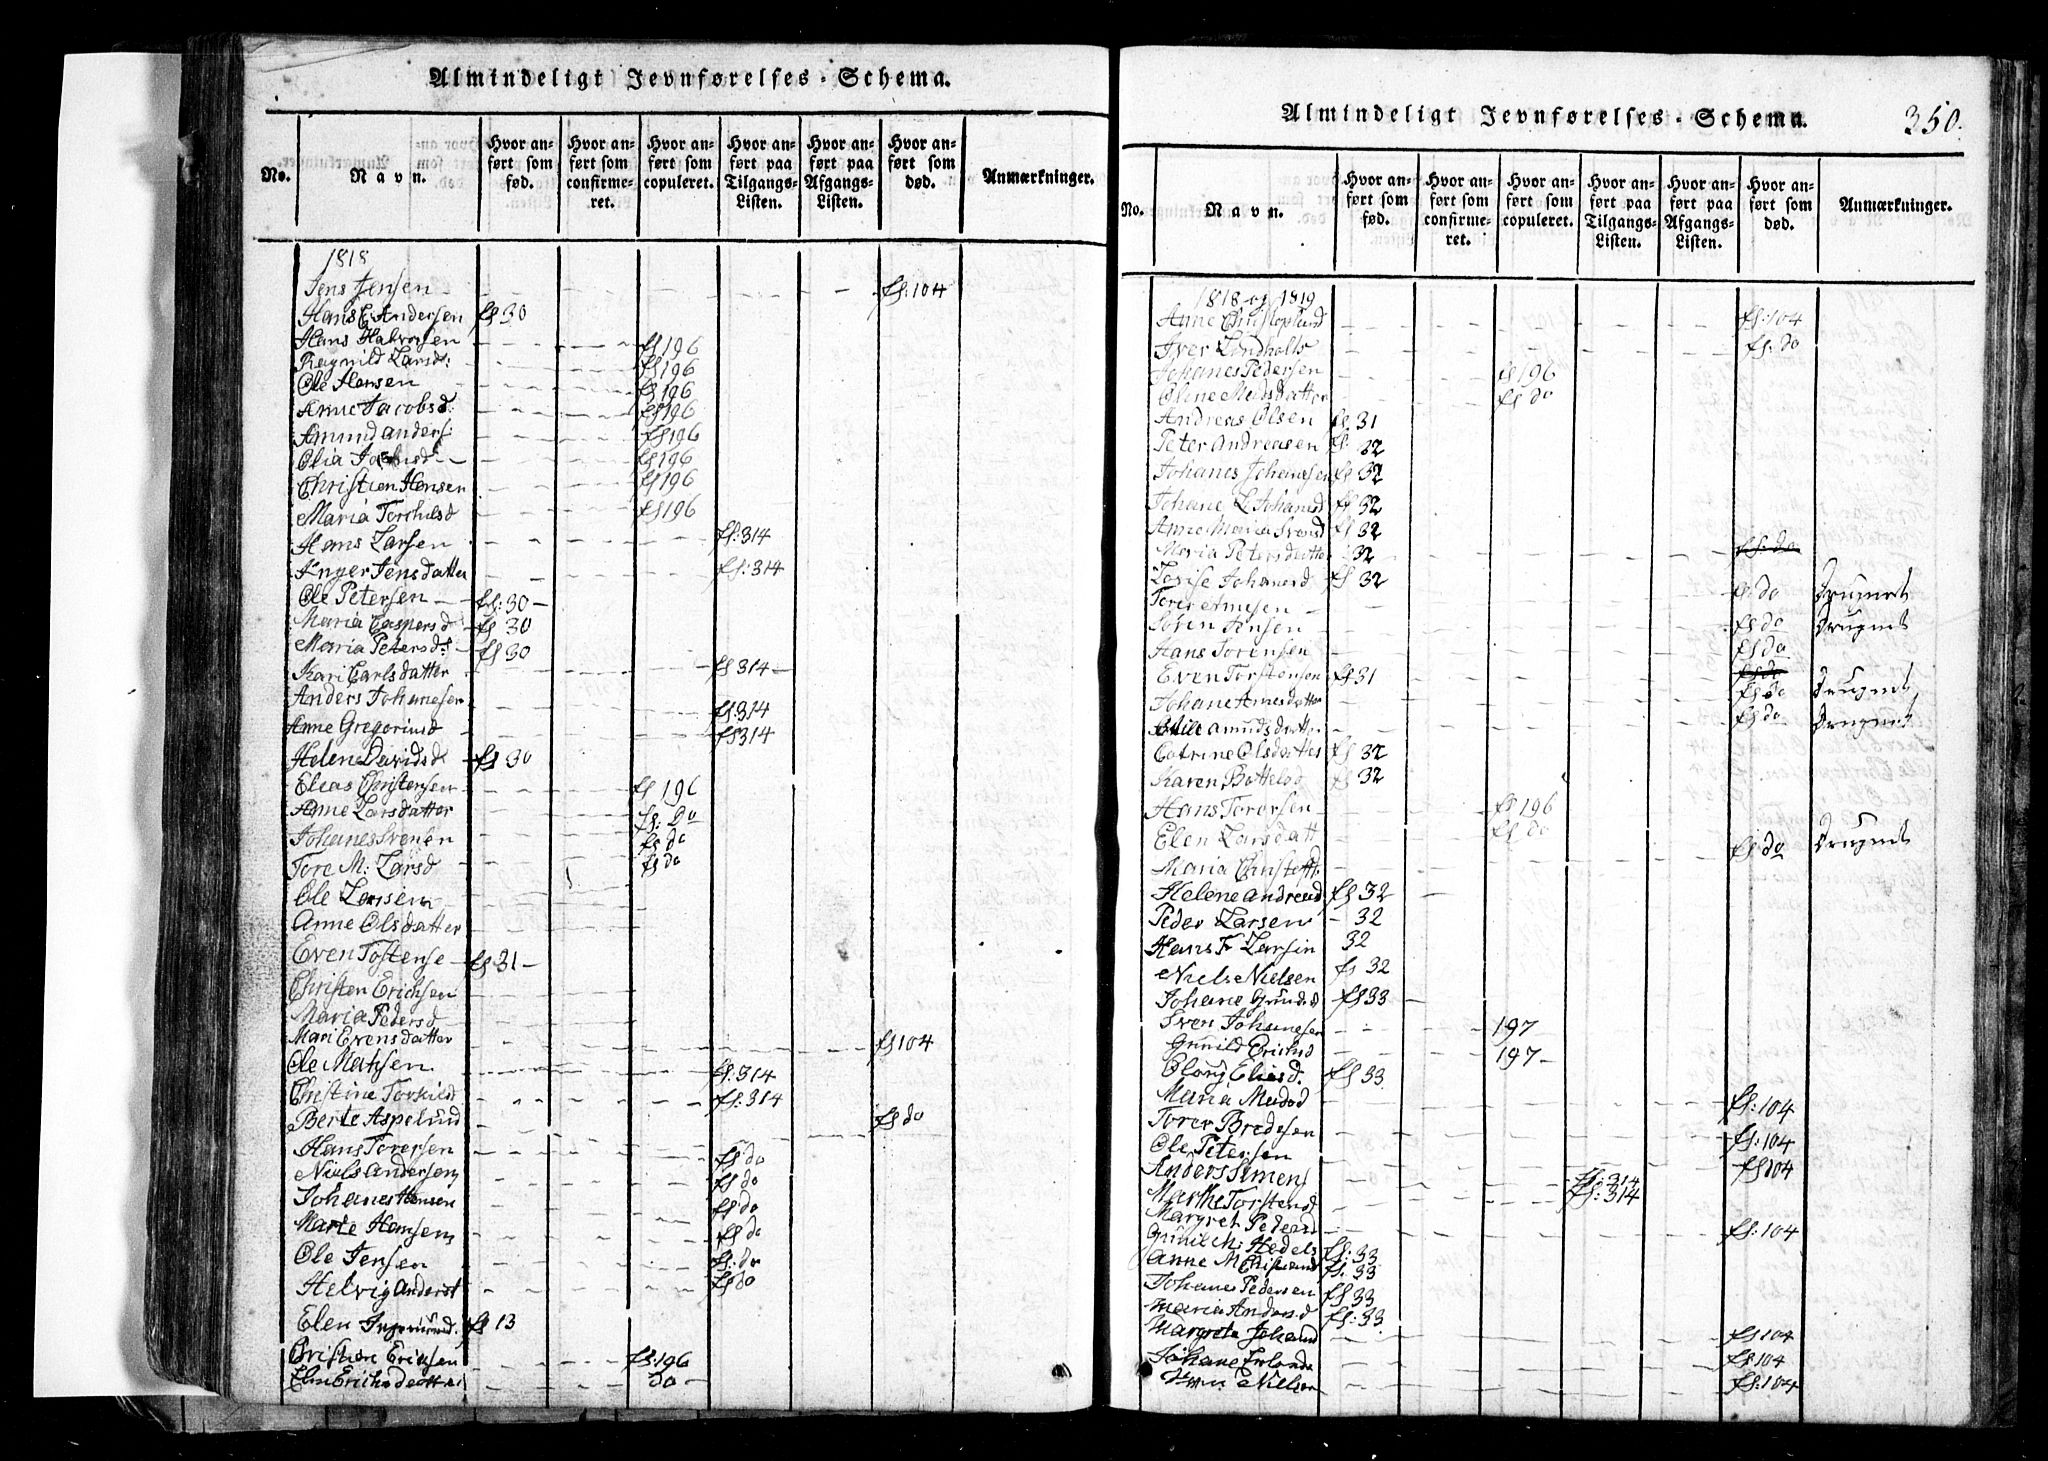 Almindeligt Jevnførelses-Schema.
No. Navn. Hvor anført som fød. Hvor anført som confirmeret. Hvor anført som copuleret. Hvor anført paa Tilgangs-Listen. Hvor anført paa Afgangs-Listen. Hvor anført som død. Anmærkninger.
1818
Jens Jensen fs:104
Hans E Andersen fs 30
Hans Halvorsen fs 196
Ragnild Larsd: fs 196
Ole Hansen fs 196
Anne Jacobsd: fs 196
Amund anders: fs 196
Olia fs 196
Christian Hansen fs 196
Maria Torchilsd fs 196
Hans Larsen fs:314
Inger Jensdatter fs:314
Ole Petersen fs:30
Maria Caspersd fs 30
Maria Petersd: fs 30
Kari Carlsdatter fs 314
Anders Johanesen fs 314
Anne Gregoriusd fs 314
Helene Davidsd fs 30
Elias Christensen fs 196
Anne Larsdatter fs: Do
Johanes Svensen fs do
Tore M: Larsd fs do
Ole Larsen
Anne Olsdatter
Even Tostense fs 31
Christen Erichsen
Maria Pedersd
Mari Evensdatter fs 104
Ole Matsen fs:314
Christine Torkilsd fs:314
Berte Aspelund fs do
Hans Torersen fs do
Niels Andersen fs do
Johanes Hansen fs do
Marte Hansen fs do
Ole Jensen fs: do
Helvig Anderst fs do
Elen Ingemund. fs 13
Christian Ericsen fs:196
Elen Erichsdatter do
Almindeligt Jevnførelses-Schema. 350.
No. Navn. Hvor anført som fød. Hvor anført som confirmeret. Hvor anført som copuleret. Hvor anført paa Tilgangs-Listen. Hvor anført paa Afgangs-Listen. Hvor anført som død. Anmærkninger.
1818 og 1819
Anne fs:104
Iver Lindholt fs: do
Johanes Pedersen fs 196
Oline Madsdatter fs do
Andreas Olsen fs 31
Peter Andreasen fs: 32
Johanes Johanesen fs 32
Johane L Johanesd fs 32
Anne Maria Svensd fs 32
Maria Petersdatter 32 fs: do
Lovise Johanesd fs 32
Torer Arnesen fs: do
Soren Jensen fs do
Hans Torensen fs do
Even Torstensen fs 31 fs do
Johane Arnesdatter fs do
amudsdatter fs do
Catrine Olsdatter fs 32
Karen Botteløg fs 32
Hans Torersen fs 196
Elen Larsdatt fs do
Maria Christofs fs do
Helene Andreasd fs 32
Peder Larsen 32
Hans F Larsen 32
Niels Nielsen fs 32
Johane fs 33
Sven Johanesen 197
Gunild Erichsd 197
Olong Eliesd. fs 33
Maria Madsd fs:104
Torer Bredesen fs:104
Ole Petersen fs 104
Anders Simens fs:314
Marthe Torstensd fs:314
Margret Pedersd fs:104
Gunil M: Hedels fs:33
Anne M fs. 33
Johane Pedersen fs 33
Maria Andersd fs:33
Margrete Johansd fs 104
Johane fs 104
Nielsen fs:104